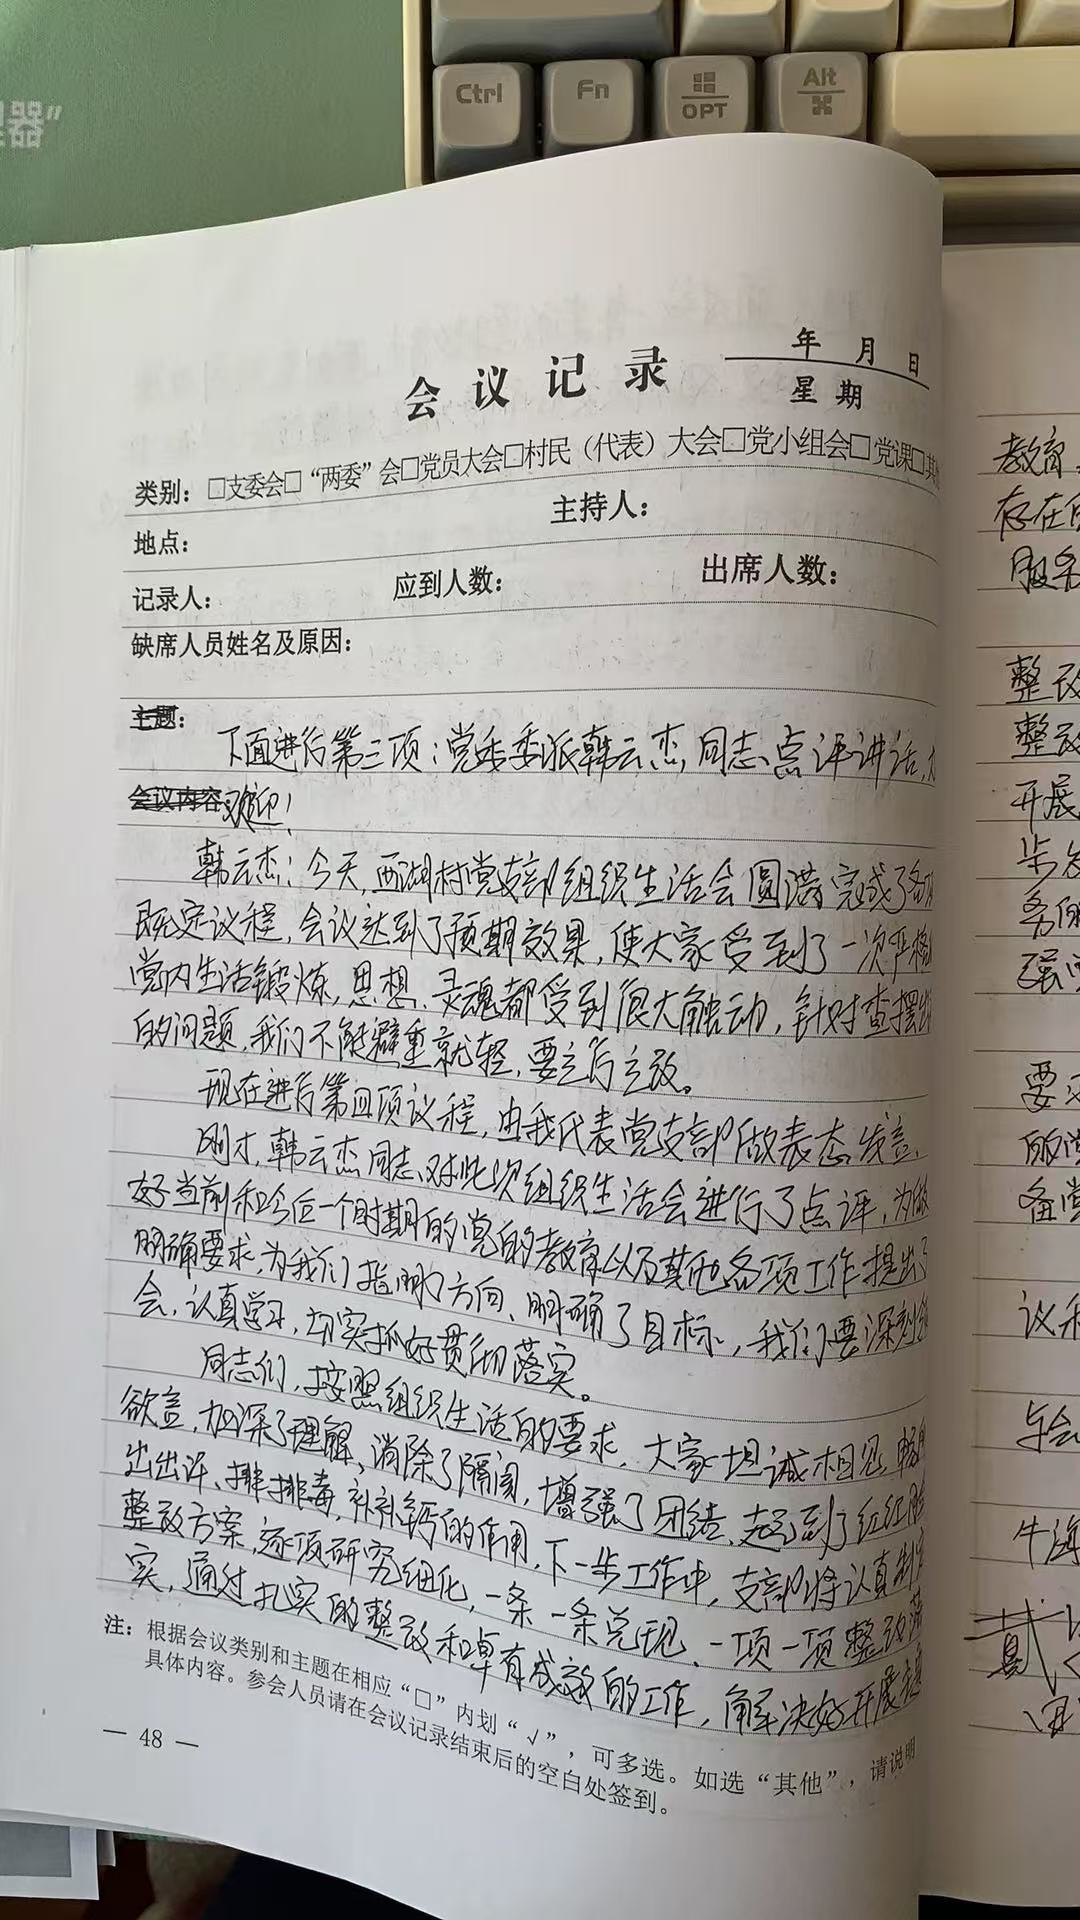 器”
Ctrl
Fn
OPT
Alt
年 月 日
会议记录
星期
类别：□支委会□“两委”会□党员大会□村民（代表）大会□党小组会□党课□其
地点：
主持人：
记录人：
应到人数：
出席人数：
缺席人员姓名及原因：
主题：
下面进行第三项：党委委派韩云杰同志点评讲话，大
会议内容 欢迎！
韩云杰：今天，西湖村党支部组织生活会圆满完成了各项
既定议程，会议达到了预期效果，使大家受到了一次严格
党内生活锻炼，思想、灵魂都受到很大触动，针对查摆出
的问题，我们不能避重就轻，要立行立改。
现在进行第四项议程，由我代表党支部做表态发言。
刚才，韩云杰同志对此次组织生活会进行了点评，为做
好当前和今后一个时期的党的教育以及其他各项工作提出了
明确要求，为我们指明了方向、明确了目标，我们要深刻领
会，认真学习，切实抓好贯彻落实。
同志们，按照组织生活的要求，大家坦诚相见，畅所
欲言，加深了理解，消除了隔阂，增强了团结，起到了红红脸
出出汗、排排毒，补补钙的作用，下一步工作中，支部将认真制定
整改方案，逐项研究细化，一条一条兑现，一项一项整改落
实，通过扎实的整改和卓有成效的工作，解决好开展主题
注：根据会议类别和主题在相应“□”内划“√”，可多选。如选“其他”，请说明
具体内容。参会人员请在会议记录结束后的空白处签到。
— 48 —
教育
存在的
服务
整改
整改
开展
步
务的
强
要
的党
备党
议程
与会
牛海
戴